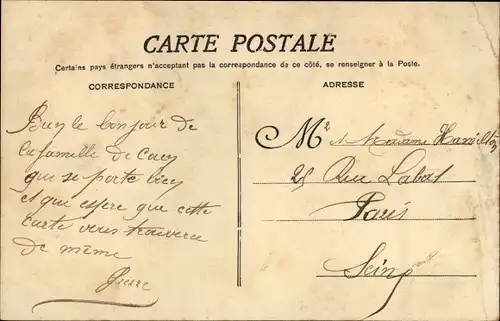 CARTE POSTALE
Certains pays étrangers n'acceptant pas la correspondance de ce côté, se renseigner à la Poste.
CORRESPONDANCE
le bonjour de
la famille de Caen
qui se porte bien
et qui espère que cette
carte vous trouvera
de même
Pierre
ADRESSE
M et Madame Hamilton
25 Rue Labat
Paris
Seine